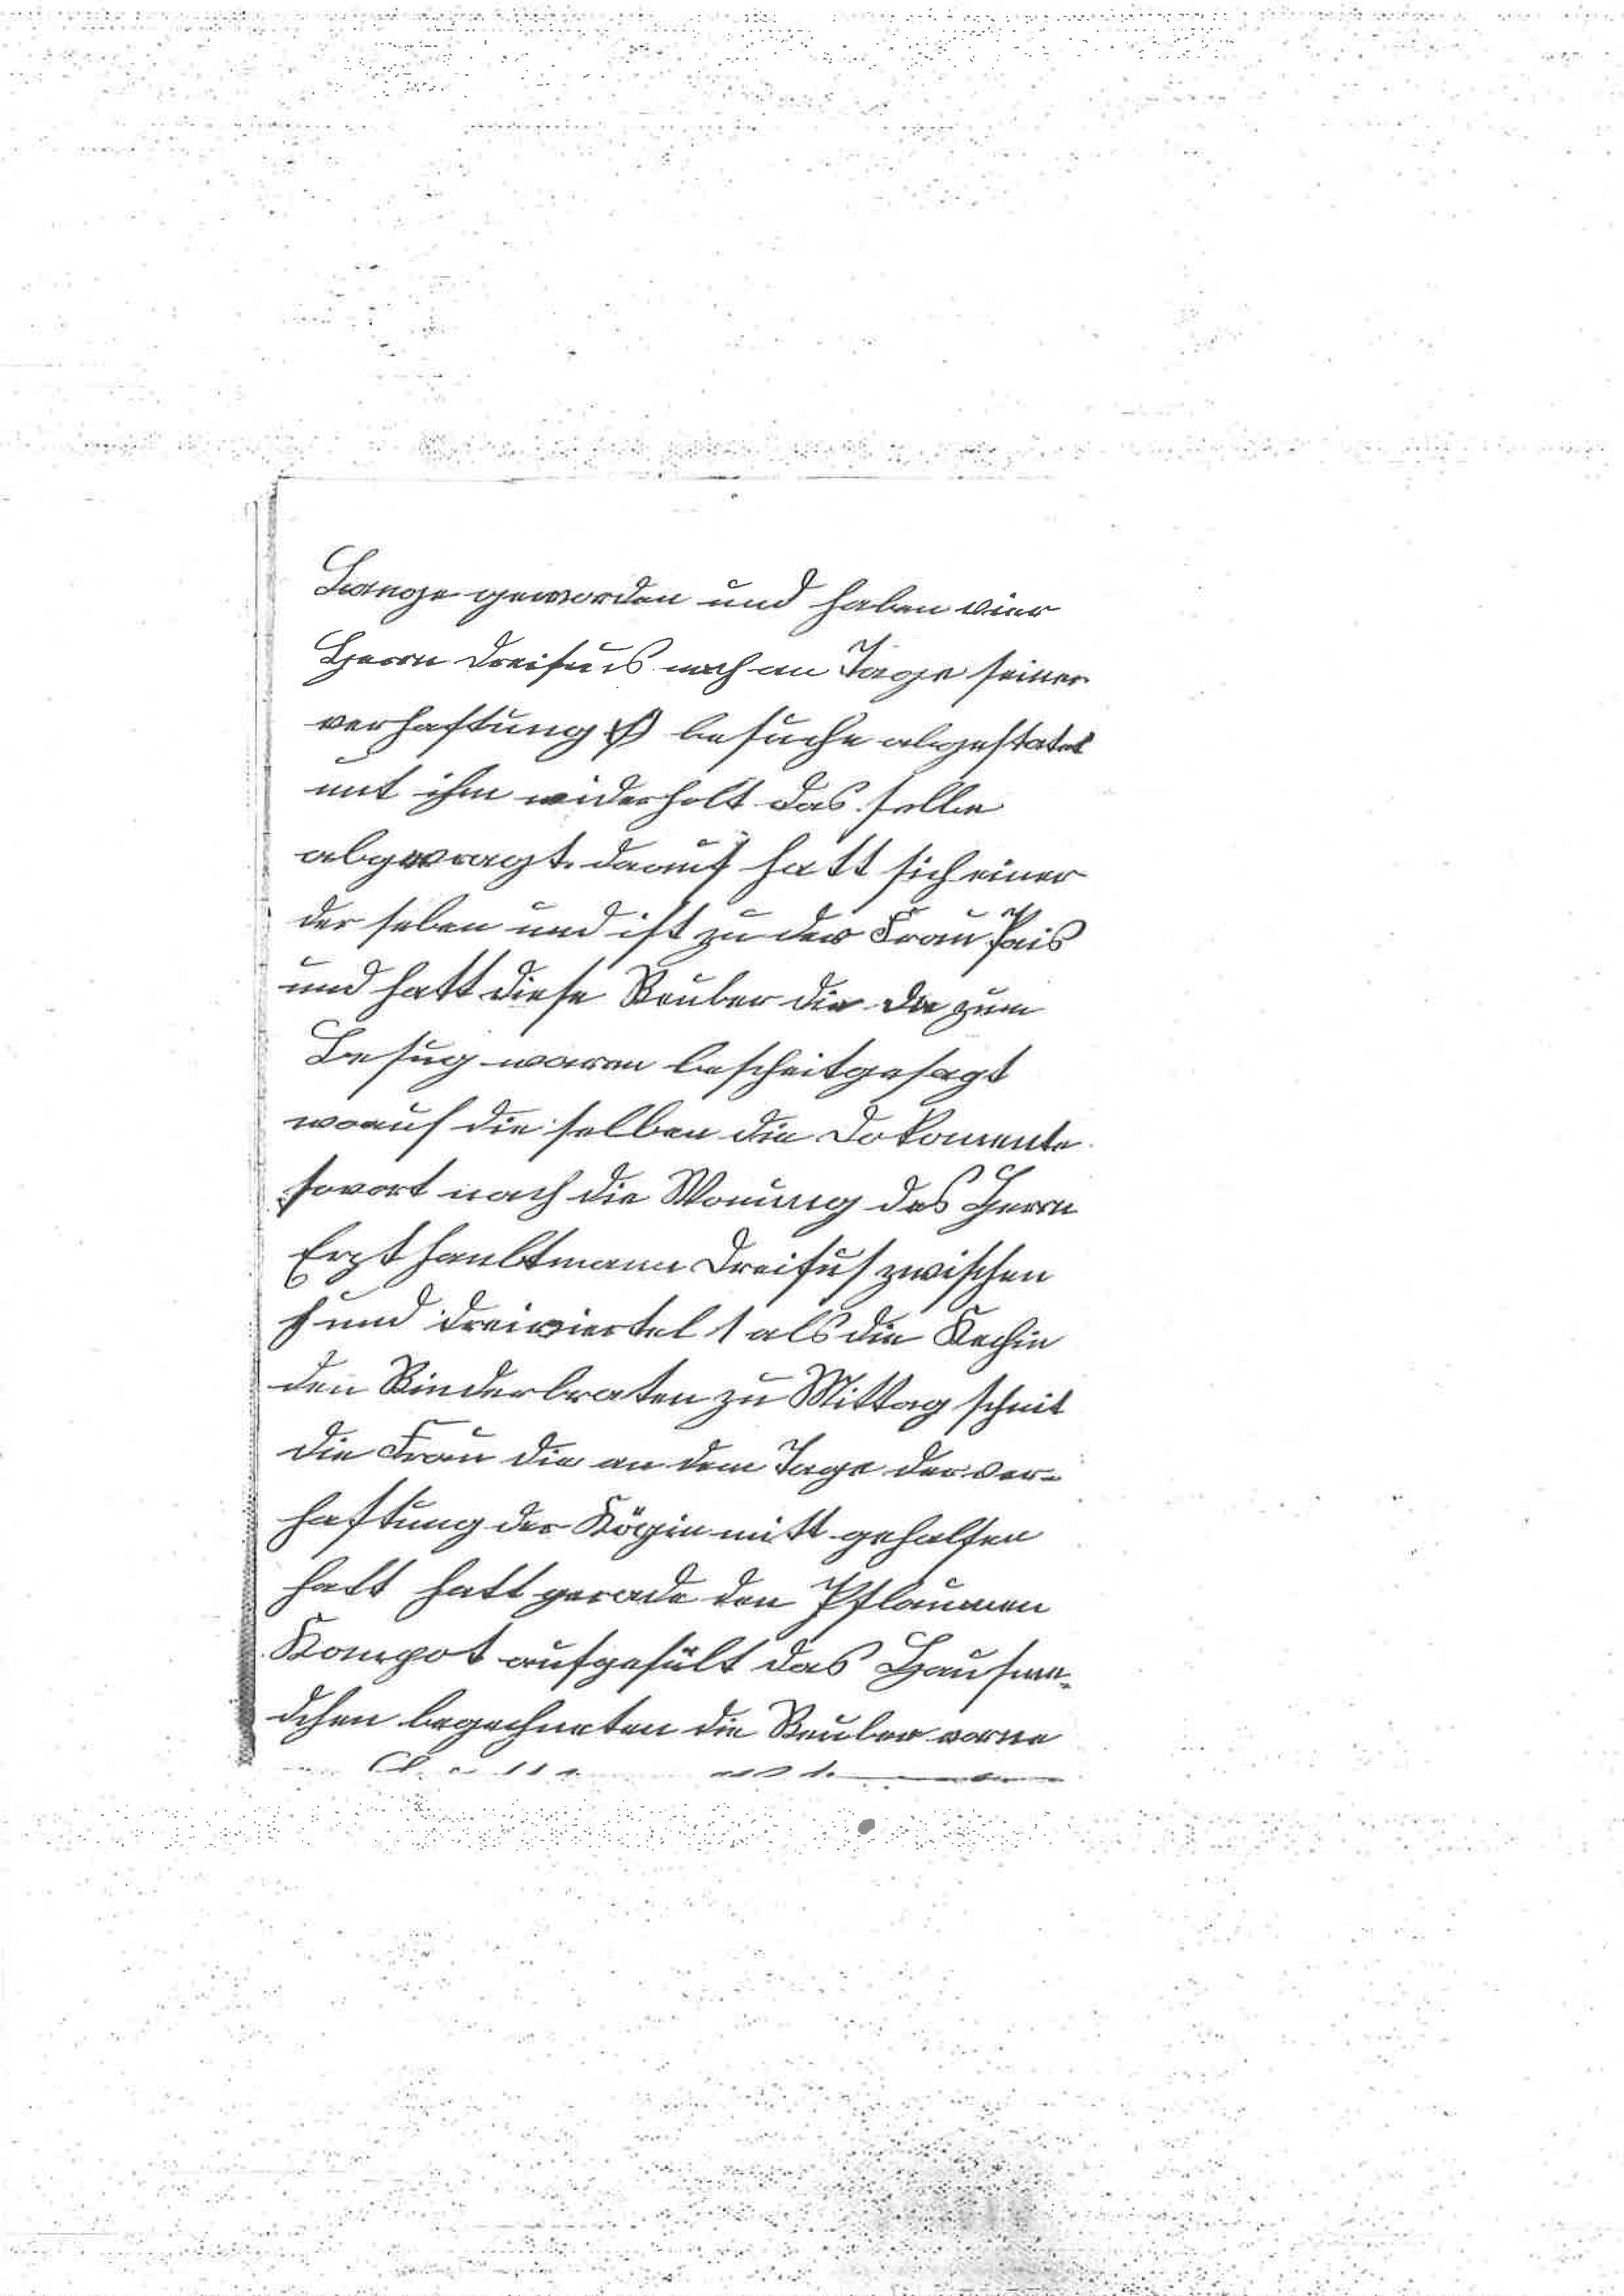 Lange geworden und haben vier
Herrn Dreifus noch an Tage seiner
verhaftung besuche abgestatet
mit ihm widerholt das selbe
abgevragt. darauf hatt sich einer
der selben und ist zu der Frau Pais
und hatt diese Reuber die da zum
Besug waren bescheitgesagt
worauf die selben die Dokomente
sovort nach die Wonung des Herrn
Erzt haubtmann Dreifus zwischen
und dreiviertel 1 als die Kechin
den Rinderbraten zu Mittag schnit
die Frau die an dem Tage der ver-
haftung der Kögin mitt gehalfen
hatt hatt gerade den Pflaumen
Kompot aufgefült das Hausme-
dchen begechneten die Reuber vorne